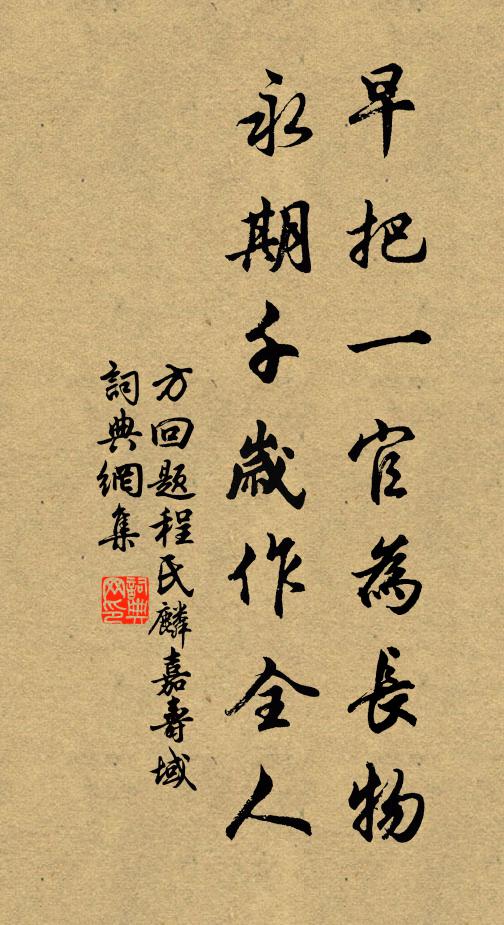 早把一官為長物
永期千歲作全人
方回題程氏麟嘉壽域
詞典網集
詞典网印